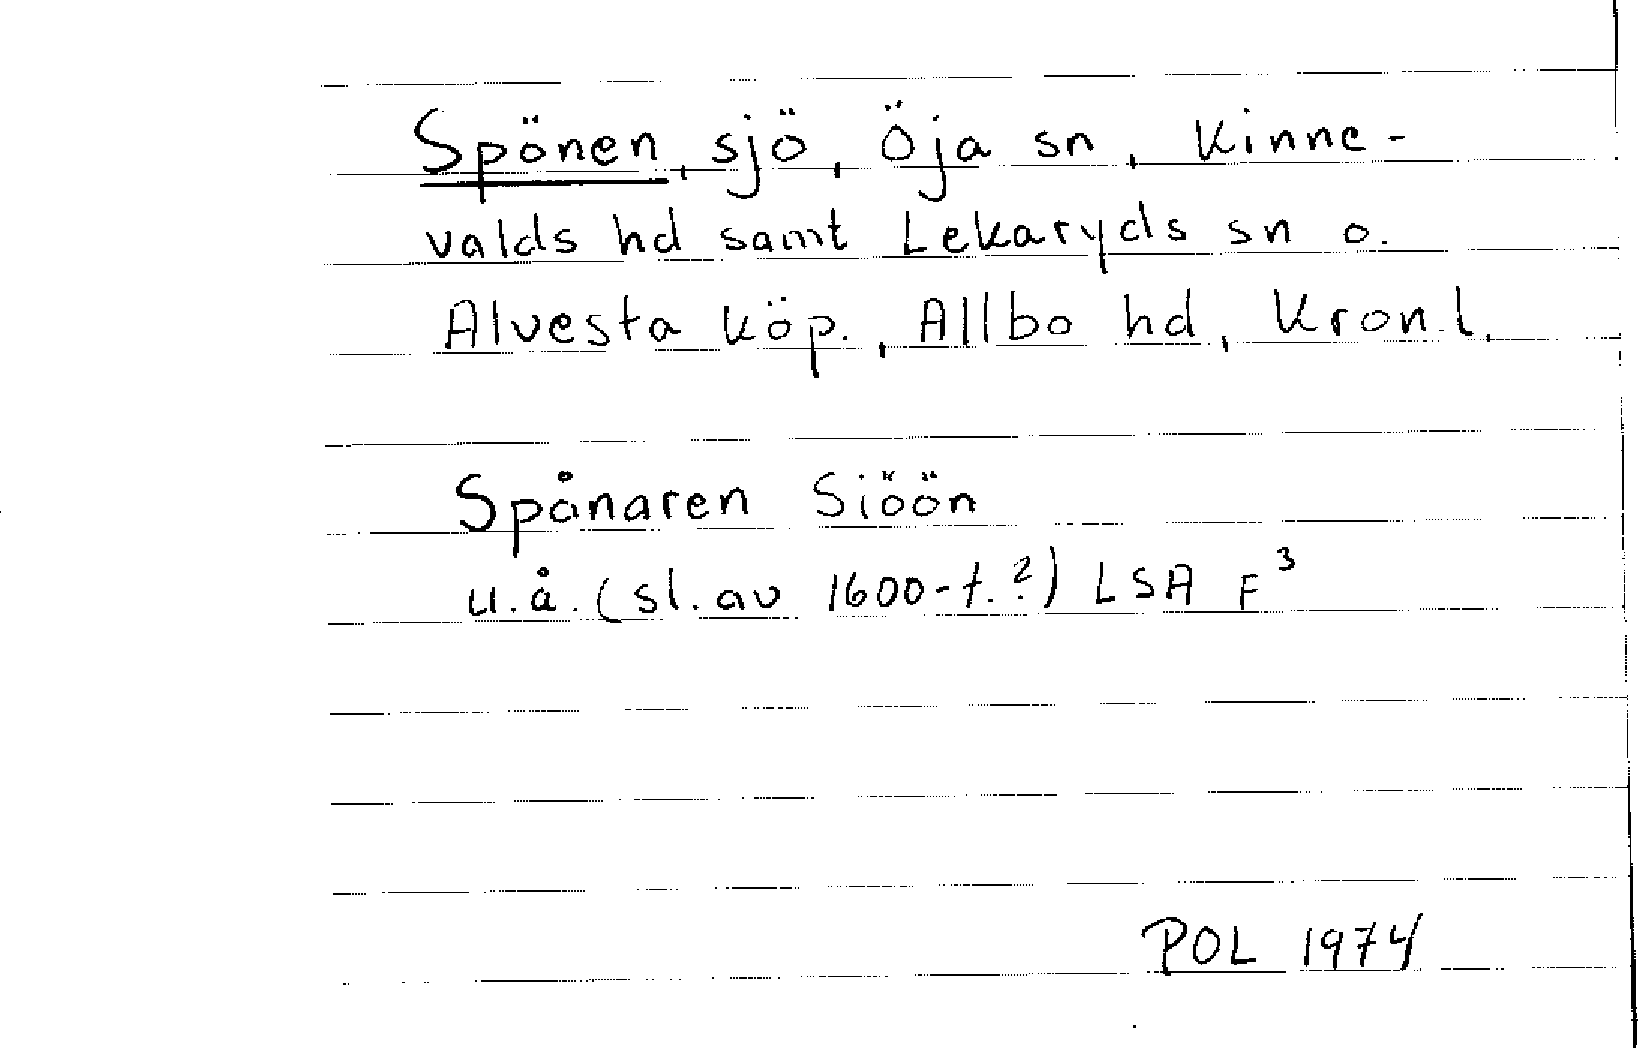 Spönen, sjö, Öja sn, Kinne-
valds hd samt Lekaryds sn o.
Alvesta köp., Allbo hd, Kron.l.
Spånaren Siöön
u.å. (sl. av 1600-t.?) LSA F³
POL 1974